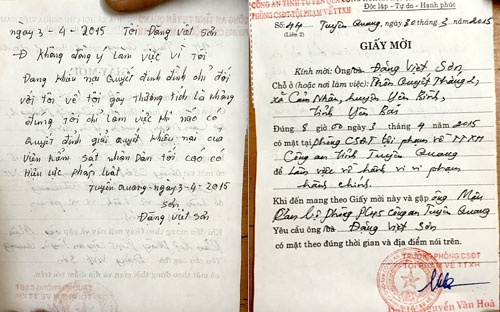 ngày 3-4-2015 Tôi Đặng Viết Sơn
Đ Không đồng ý làm việc vì tôi
Đang khiếu nại Quyết định đình chỉ đối
với tôi về tội gây thương tích là không
đúng tôi chỉ làm việc khi nào có
Quyết định giải quyết khiếu nại của
Viện kiểm sát nhân Dân tối cao có
Hiệu lực pháp luật
Tuyên Quang ngày 3-4-2015
Sơn
Đặng Viết Sơn
CÔNG AN TỈNH TUYÊN QUANG
PHÒNG CSĐT TỘI PHẠM VỀ TTXH
Độc lập - Tự do - Hạnh phúc
Số 44
(Liên 2)
Tuyên Quang, ngày 30 tháng 3 năm 2015
GIẤY MỜI
Kính mời: Ông/bà Đặng Viết Sơn
Chỗ ở (hoặc nơi làm việc): Thôn Quyết Thắng 2,
xã Cẩm Nhân, huyện Yên Bình,
tỉnh Yên Bái
Đúng 8 giờ 00 ngày 3 tháng 4 năm 2015
có mặt tại Phòng CSĐT tội phạm về TTXH
Công an tỉnh Tuyên Quang
để Làm việc về hành vi vi phạm
hành chính.
Khi đến mang theo Giấy mời này và gặp ông Mận
Cán bộ Phòng PC45 Công an Tuyên Quang
Yêu cầu ông/bà Đặng Viết Sơn
có mặt theo đúng thời gian và địa điểm nói trên.
TRƯỞNG PHÒNG CSĐT
TỘI PHẠM VỀ TTXH
Nguyễn Văn Hoà